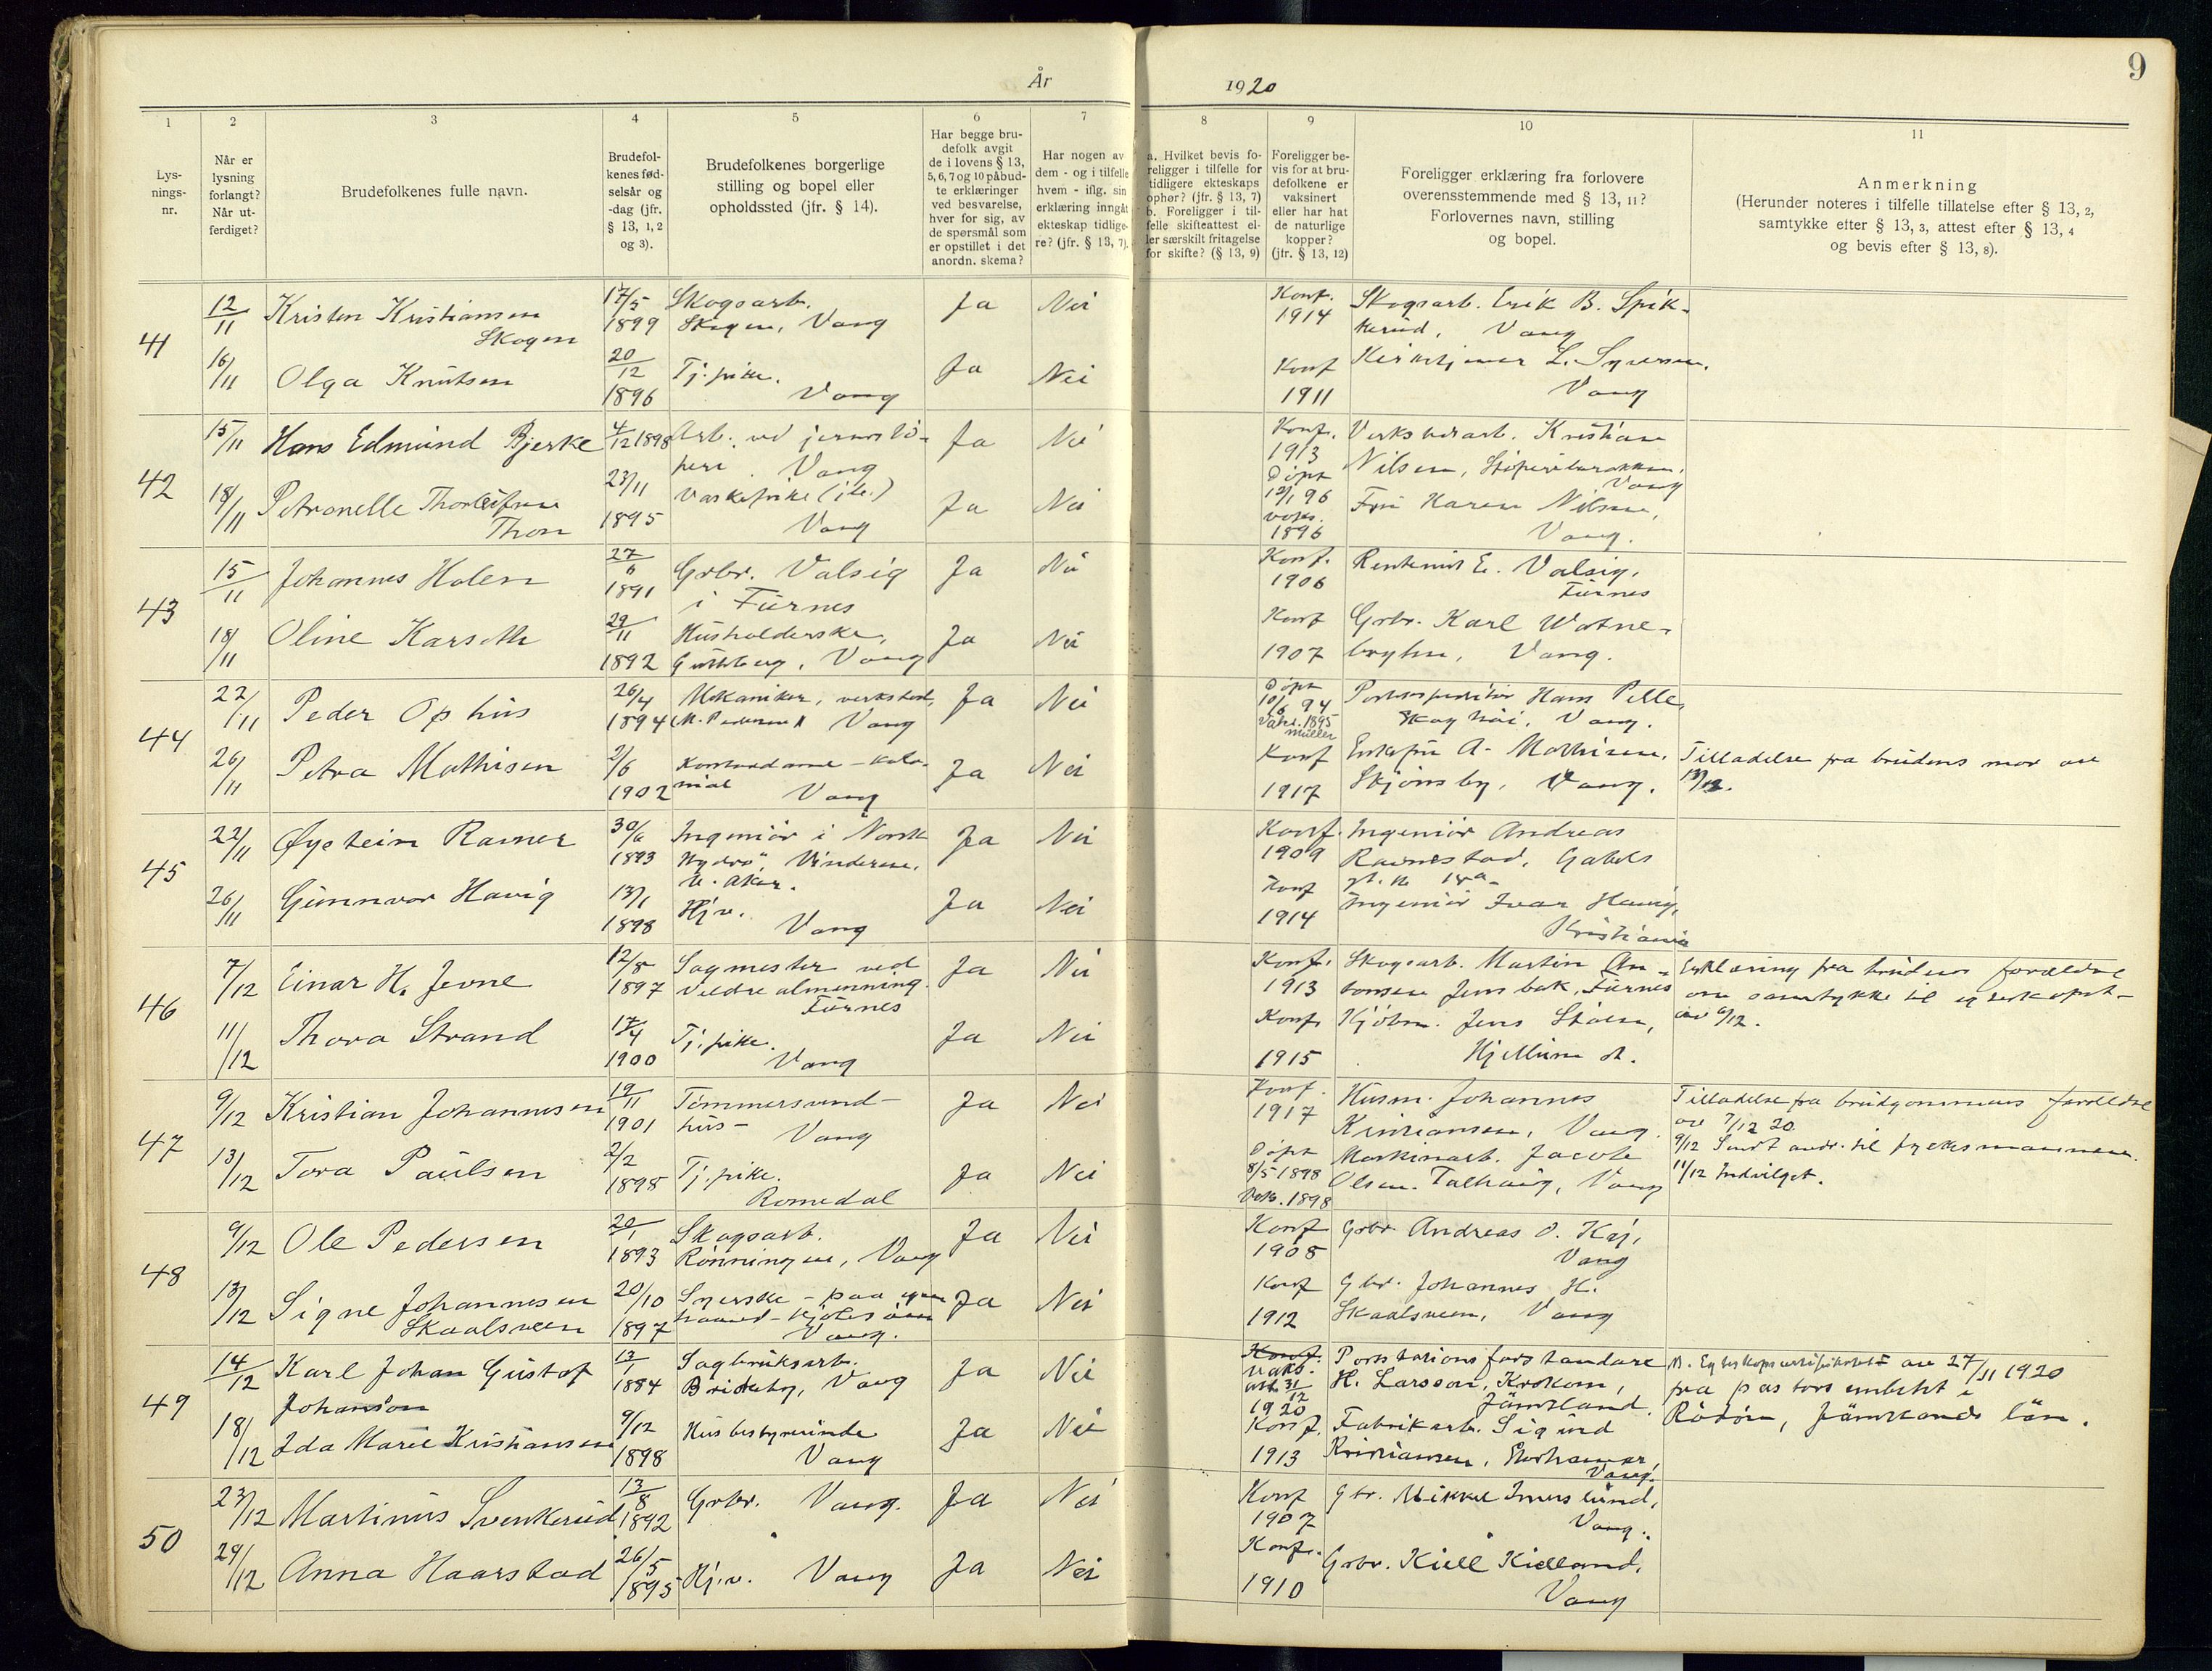 9
År 1920
1
2
3
4
5
6
7
8
9
10
11
Lys-
nings-
nr.
Når er
lysning
forlangt?
Når ut-
ferdiget?
Brudefolkenes fulle navn.
Brudefol-
kenes fød-
selsår og
-dag (jfr.
§ 13, 1, 2
og 3).
Brudefolkenes borgerlige
stilling og bopel eller
opholdssted (jfr. § 14).
Har begge bru-
defolk avgit
de i lovens § 13,
5, 6, 7 og 10 påbud-
te erklæringer
ved besvarelse,
hver for sig, av
de spørsmål som
er opstillet i det
anordn. skema?
Har nogen av
dem - og i tilfelle
hvem - iflg. sin
erklæring inngåt
ekteskap tidlige-
re? (jfr. § 13, 7).
a. Hvilket bevis fo-
religger i tilfelle for
tidligere ekteskaps
ophør? (jfr. § 13, 7)
b. Foreligger i til-
felle skifteattest el-
ler særskilt fritagelse
for skifte? (§ 13, 9)
Foreligger be-
vis for at bru-
defolkene er
vaksinert
eller har hat
de naturlige
kopper?
(jfr. § 13, 12)
Foreligger erklæring fra forlovere
overensstemmende med § 13, 11?
Forlovernes navn, stilling
og bopel.
Anmerkning
(Herunder noteres i tilfelle tillatelse efter § 13, 2,
samtykke efter § 13, 3, attest efter § 13, 4
og bevis efter § 13, 8).
41
12/11 Kristen Kristiansen
Skogen
17/5
1899
Skogsarb.
Skogen, Vang
Ja Nei
Konf.
1914
Skogsarb. Erik B. Spik-
kerud, Vang
16/11 Olga Knutsen
20/12
1896
Tj. pike.
Vang
Ja Nei
Konf
1911
L. Syversen,
Vang
42
15/11 Hans Edmund Bjerke
4/12 1898
Arb. ved jernstö-
peri. Vang
Ja Nei
Konf.
1913
Verkstedarb. Kristian
Nilsen,
Vang
18/11 Petronelle Thorleifsen
Thon
23/11
1895
Vaskepike
Vang
Ja Nei
Döpt
12/1 96
1896
Fru Karen Nilsen,
Vang.
43
15/11 Johannes Holen
27/6
1891
Grbr. Valsig
i Furnes
Ja Nei
Konf.
1906
E. Valsig,
Furnes
18/11 Oline Karseth
29/11
1892
Husholderske,
Vang
Ja Nei
Konf
1907
Grbr. Karl Watne-
bryhn, Vang.
44
22/11 Peder Ophus
26/4
1894
Mekaniker, verksted,
(M. Pedersen) Vang
Ja Nei
Döpt
10/6 94
Vaks. 1895
Müller
Postexpeditör Hans Pelle,
Skoghöi, Vang.
26/11 Petra Mathisen
2/6
1902
Kontordame - kolo-
nial
Vang
Ja Nei
Konf
1917
Enkefru A. Mathisen,
Skjönsby, Vang.
Tilladelse fra brudens mor av
45
22/11 Øystein Ravner
30/6
1893
Ingeniör i Norsk
Hydro", Vinderen,
V. Aker.
Ja Nei
Konf.
1909
Ingeniör Andreas
Ravnestad, Gabels
26/11 Gunnvor Havig
13/1
1898
Hjv.
Vang
Ja Nei
Konf
1914
Ingeniör Ivar Havig,
Kristiania
46
7/12 Einar H. Jevne
12/8
1897
Sagmester ved
Veldre almenning.
Furnes
Ja Nei
Konf.
1913
Skogsarb. Martin An-
tonsen Jensbak, Furnes
Erklæring fra brudens forældre
om samtykke til egteskapet-
av 6/12.
11/12 Thora Strand
17/4
1900
Tj. pike.
Vang
Ja Nei
Konf.
1915
Kjöbm. Jens
Hjellum st.
47
9/12 Kristian Johannesen
19/11
1901
Tömmersund-
hus-
Vang
Ja Nei
Konf.
1917
Husm. Johannes
Kristiansen, Vang.
Tilladelse fra brudgommens forældre
av 7/12 20.
9/12 Sendt andr. til fylkesmannen.
11/12 Indvilget.
13/12 Tora Paulsen
2/2
1898
Tj. pike.
Romedal
Ja Nei
Döpt
8/5 1898
Vak. 1898
Maskinarb. Jacob
Olsen. Vang
48
9/12 Ole Pedersen
20/1
1893
Skogsarb.
Rönningen, Vang
Ja Nei
Konf
1908
Grbr. Andreas O.
Vang
13/12 Signe Johannesen
Skaalsveen
20/10
1897
Syerske - paa egen
haand -
Vang.
Ja Nei
Konf
1912
Gbr. Johannes H.
Skaalsveen, Vang
49
14/12 Karl Johan Gustof
Johanson
13/1
1884
Sagbruksarb.
Vang
Ja Nei
Konf.
Vaks.
att. 31/12
1920
H. Larsson, Krokom,
Jämtland.
Egteskapscertifikatet av 27/11 1920
fra pastors embetet i
Rödön, Jämtlands län.
18/12 Ida Marie Kristiansen
9/12
1898
Husbestyrerinde
Vang
Ja Nei
Konf.
1913
Fabrikarb. Sigurd
Kristiansen, Storhamar,
Vang.
50
23/12 Martinus Svenkerud
13/8
1892
Grbr. Vang.
Ja Nei
Konf
1907
Gbr. Mikkel Imerslund,
Vang.
29/12 Anna Haarstad
26/5
1895
Hj.v. Vang
Ja Nei
Konf.
1910
Grbr. Kiell Kielland,
Vang